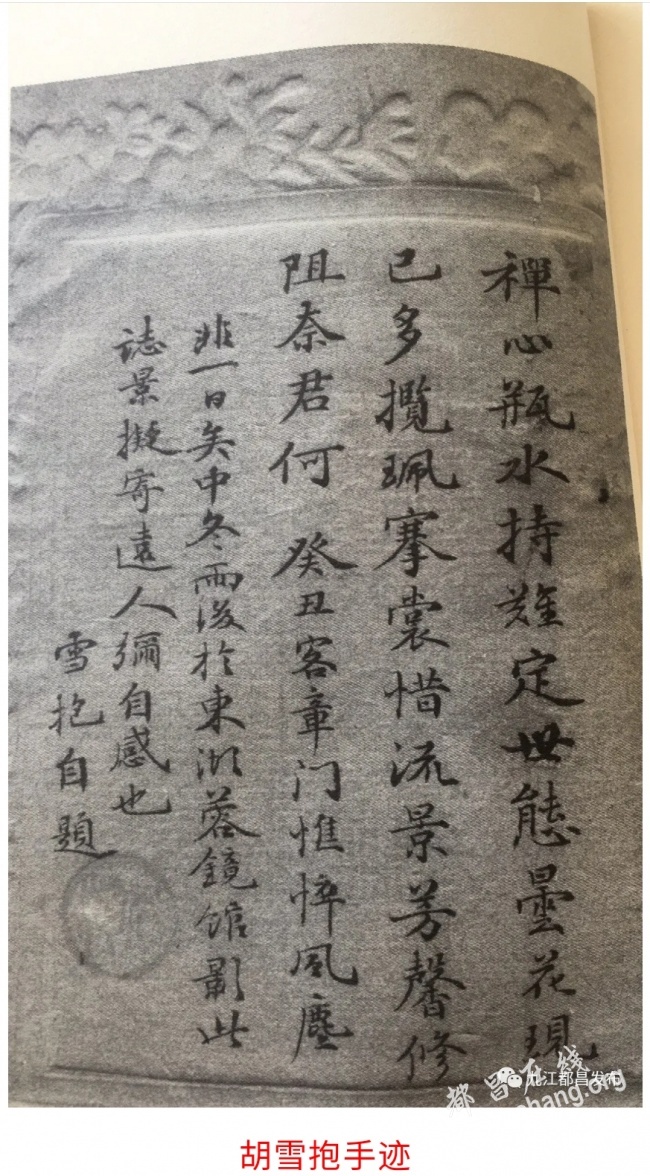 禪心瓶水持難定世態曇花現
已多攬珮搴裳惜流景芳馨修
阻奈君何 癸丑客章门惟悴風塵
非一日矣中冬雨後於東湖蓉鏡館影此
誌景擬寄遠人彌自感也
雪抱自題
九江都昌发布
都昌在线
hang.org
胡雪抱手迹